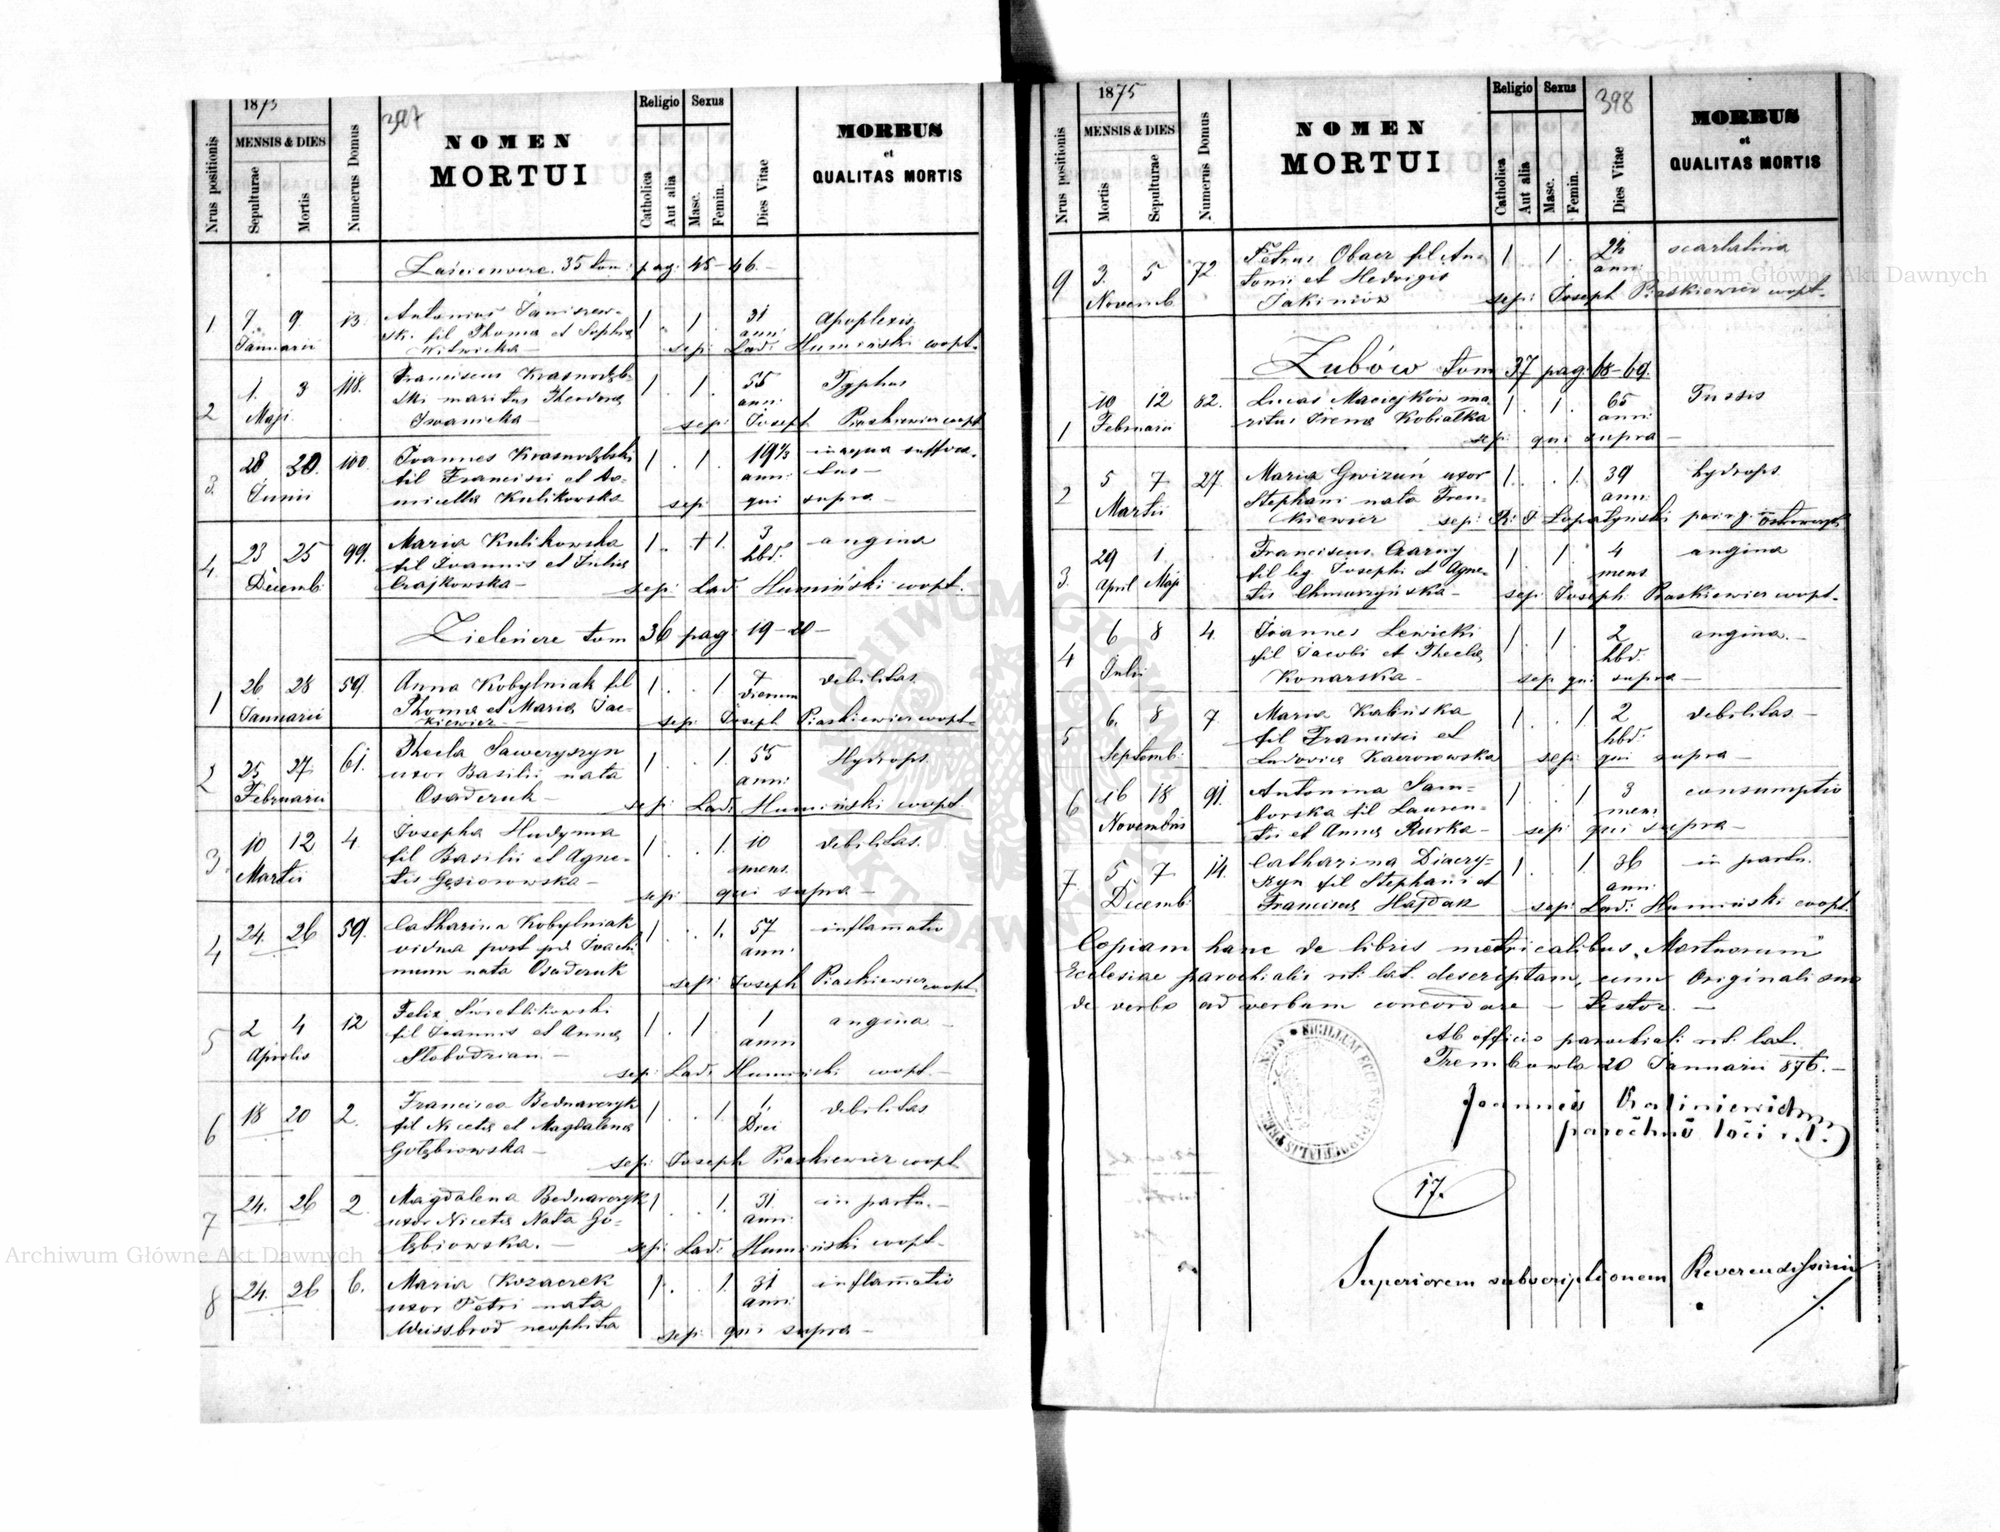 1875
397
Nrus positionis
MENSIS & DIES
Sepulturae
Mortis
Numerus Domus
NOMEN
MORTUI
Religio
Sexus
Catholica
Aut alia
Masc.
Femin.
Dies Vitae
MORBUS
et
QUALITAS MORTIS
35 tom: pag: 45-46.-
1. 7. 9. 13. Antonius Janiszew- 1 . 1 . 31 Apoplexis
Januarii ski fil Thoma et Sophia ann:
Witwicka - sep: Lad: Humeński coopt.
2 1. 3 118. Franciscus Krasnodęb- 1 . 1 . 55 Typhus
Maji ski maritus Theodora ann:
Iwanicka - sep: Joseph Piaskiewicz coopt
3. 28 30. 100. Joannes Krasnodębski 1 . 1 . in aqua suffoca-
Junii fil Francisci et Do- ann: tus -
micella Kulikowska sep: qui supra -
4. 23 25 99. Maria Kulikowska 1 . 1. 3 angina
Decemb: fil Joannis et Julia hbd:
Czajkowska - sep: Lad: Humiński coopt.
Zieleńcze tom 36 pag: 19-20-
1 26 28 59. Anna Kobylniak fil 1 . . 1 7 debilitas
Januarii Thoma et Maria Jac- dierum
kiewicz - sep: Joseph Piaskiewicz coopt-
2 25 27. 61. Thecla Saweryszyn 1 . . 1. 55 Hydrops.
Februarii uxor Basilii nata ann:
Osaderuk - sep: Lad: Humiński coopt
3. 10 12 4 Josepha Hudyma 1 . . 1. 10 debilitas.
Martii fil Basilii et Agne- mens.
tis Gęsiorowska - sep: qui supra -
4 24. 26 59. Catharina Kobylniak 1 . . 1. 57 inflamatio
vidua post pd Joachi ann:
mum nata Osaderuk sep: Joseph Piaskiewicz coopt.
5 2 4 12 Felix Świetlikowski 1 . 1 1 angina -
Aprilis fil Joannis et Anna anni
Slobodzian. - sep: Lad: Humiński coopt.-
6 18 20 2. Francisca Bednarczyk 1 . . 1. 1. debilitas
fil Niceta et Magdalena Diei
Gołębiowska - sep: Joseph Piaskiewicz coopt.
7 24. 26 2. Magdalena Bednarczyk 1 . . 1. 31 in partu. -
uxor Niceta Nata Go- ann:
łębiowska. - sep: Lad: Humiński coopt.
8 24. 26 6. Maria Kozaczek 1 . . 1. 31 inflamatio
uxor Petri nata ann:
Weissbrod neophita sep: qui supra -
1875
398
Nrus positionis
MENSIS & DIES
Mortis
Sepulturae
Numerus Domus
NOMEN
MORTUI
Religio
Sexus
Catholica
Aut alia
Masc.
Femin.
Dies Vitae
MORBUS
et
QUALITAS MORTIS
9 3. 5 72. Petrus Obacz fil An- 1 . 1 . scarlatina
Novemb. tonii et Hedvigis anni
Jakimów sep: Joseph Piaskiewicz coopt-
Zubów tom 37 pag: 68-69.
1 10 12 82. Lucas Maciejków ma- 1 . 1 . 65 Tussis
Februarii ritus Irena Kobiałka ann:
sep: qui supra -
2 5 7 27. Maria Gwizuń uxor 1 . . 1. 39 hydrops.
Martii Stephani nata Tren- ann:
kiewicz sep: Lopatynski
3. 29 1 Franciscus Czarny 1 . 1 4 angina
April Maji fil leg. Josephi et Agne- mens
tis Chmurzyńska - sep: Joseph Piaskiewicz coopt-
4 6 8 4. Joannes Lewicki 1 . 1 . 2 angina. -
Julii fil Jacobi et Thecla hbd:
Konarska - sep qui supra -
5 6. 8 7. Maria Kalińska 1 . . 1 2 debilitas -
Septemb: fil Francisci et hbd:
Ludovica Kaczorowska sep: qui supra -
6 16 18 91. Antonina Sam- 1 . . 1 3 consumptio
Novembris borska fil Lauren- mens
tii et Anna Rurka - sep: qui supra -
7. 5 7 14. Catharina Diaczy- 1 . . 1. 36 in partu.
Decemb: szyn fil Stephani et ann:
Francisca Hajdak sep: Lad: Humiński coopt.
Copiam hanc de libris metricalibus „Mortuorum"
Ecclesiae parochialis rit: lat. descriptam, cum Originali suo
de verbo ad verbum concordare - testor. -
Ab officio parochiali rit: lat.
Trembowla 20 Januarii 876. -
Joannes Kaliniewicz
parochus loci r. l.
SIGILLUM ECCLESIAE PAROCHIALIS
17.
Superiorem subscriptionem Reverendissimi
Archiwum Główne Akt Dawnych
Archiwum Główne Akt Dawnych
ARCHIWUM GŁÓWNE AKT DAWNYCH